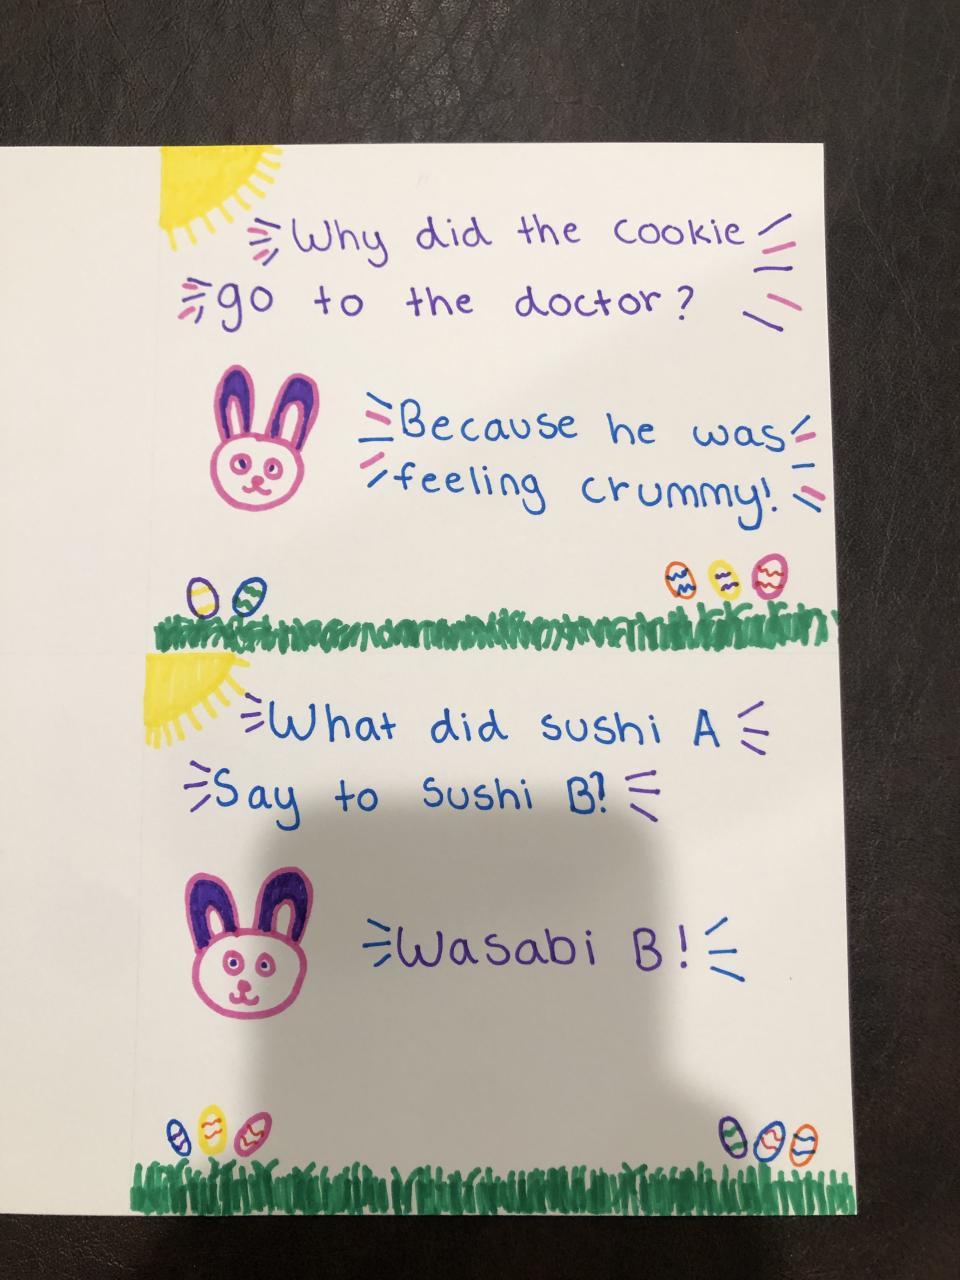 Why did the cookie
go to the doctor?
Because he was
feeling crummy!
What did sushi A
Say to Sushi B?
Wasabi B!